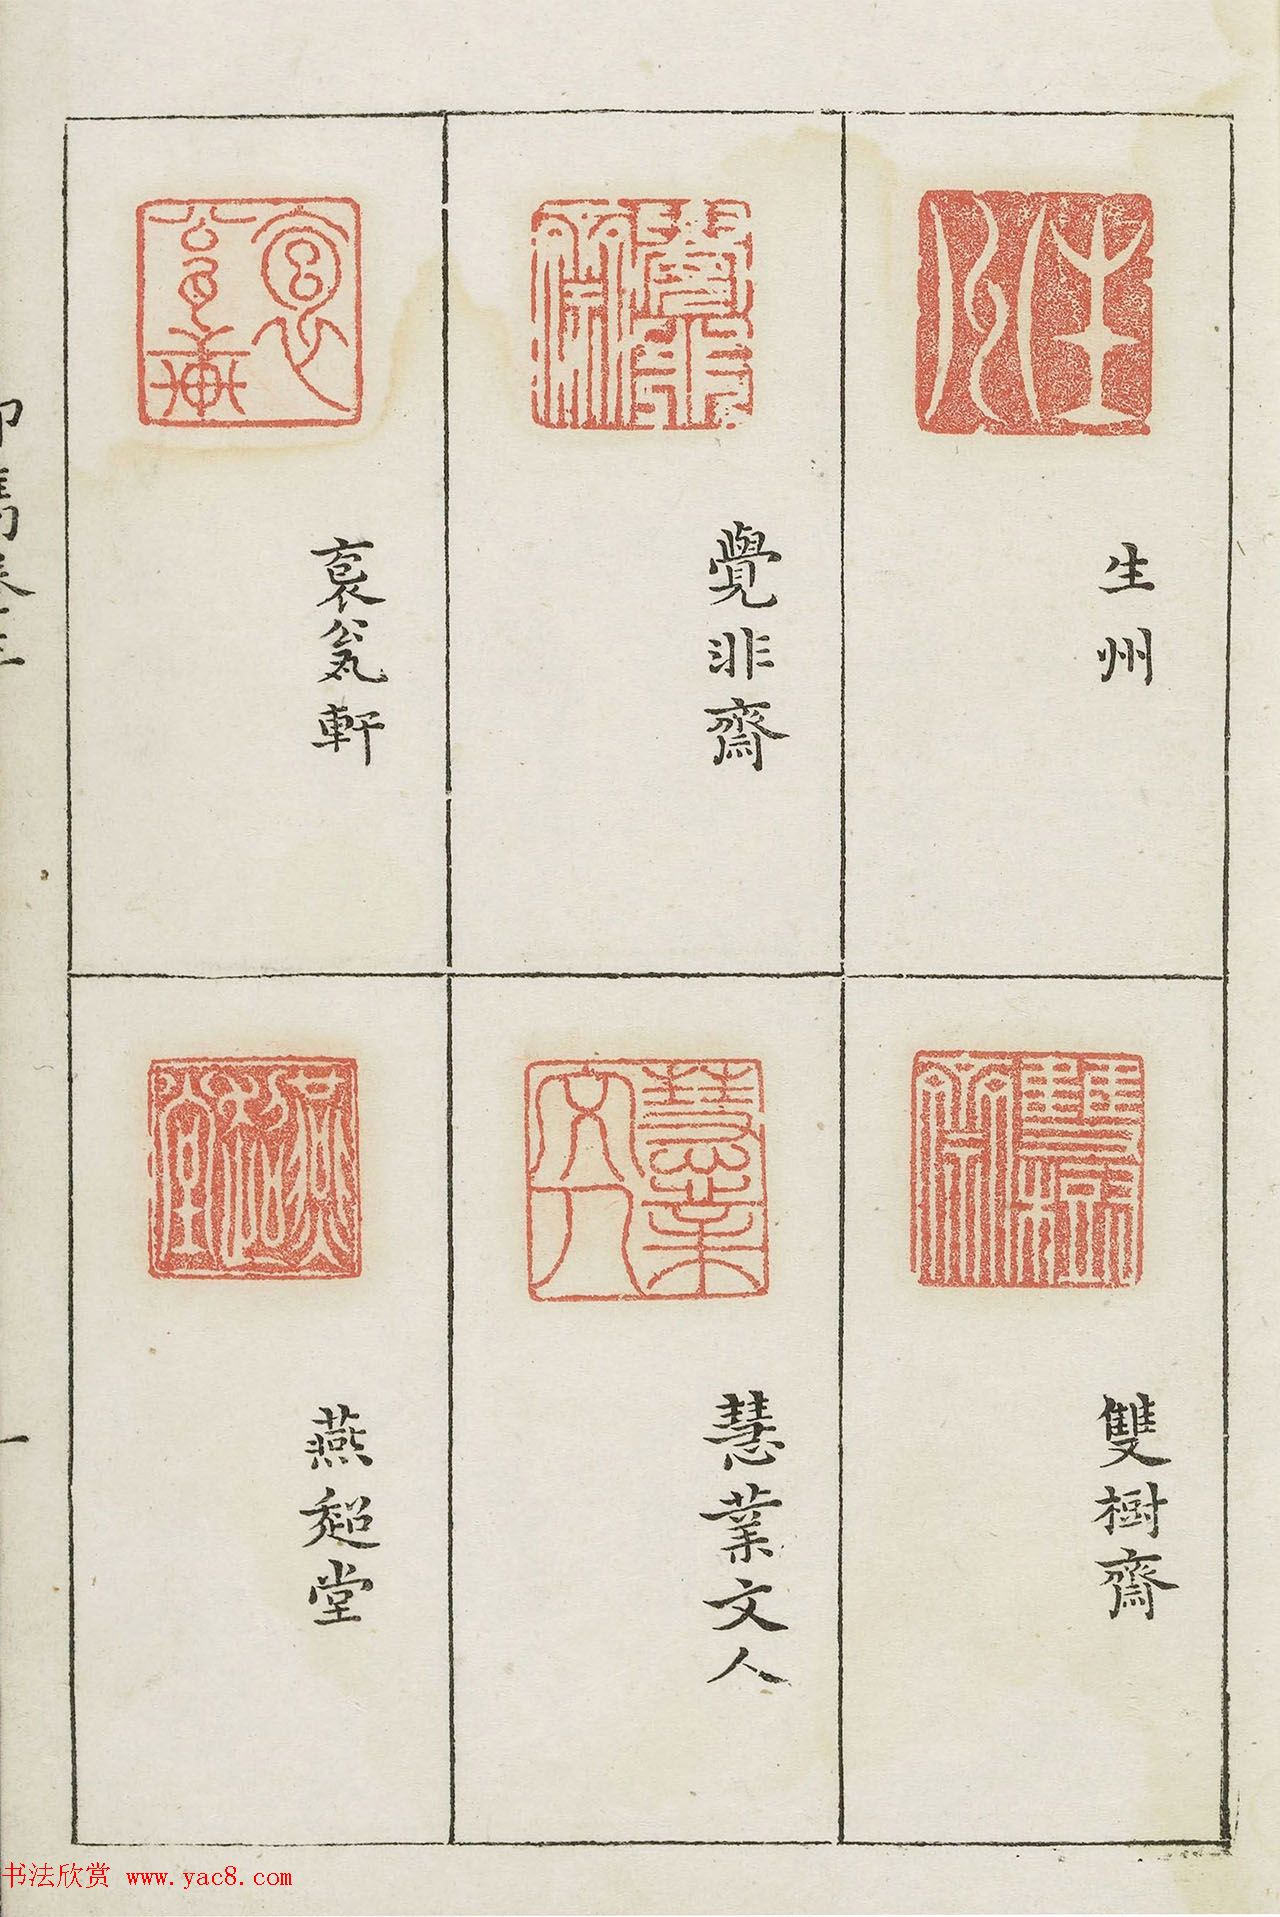 生州
覺非齋
袁𠔌軒
雙樹齋
慧業文人
燕超堂
一
书法欣赏 www.yac8.com